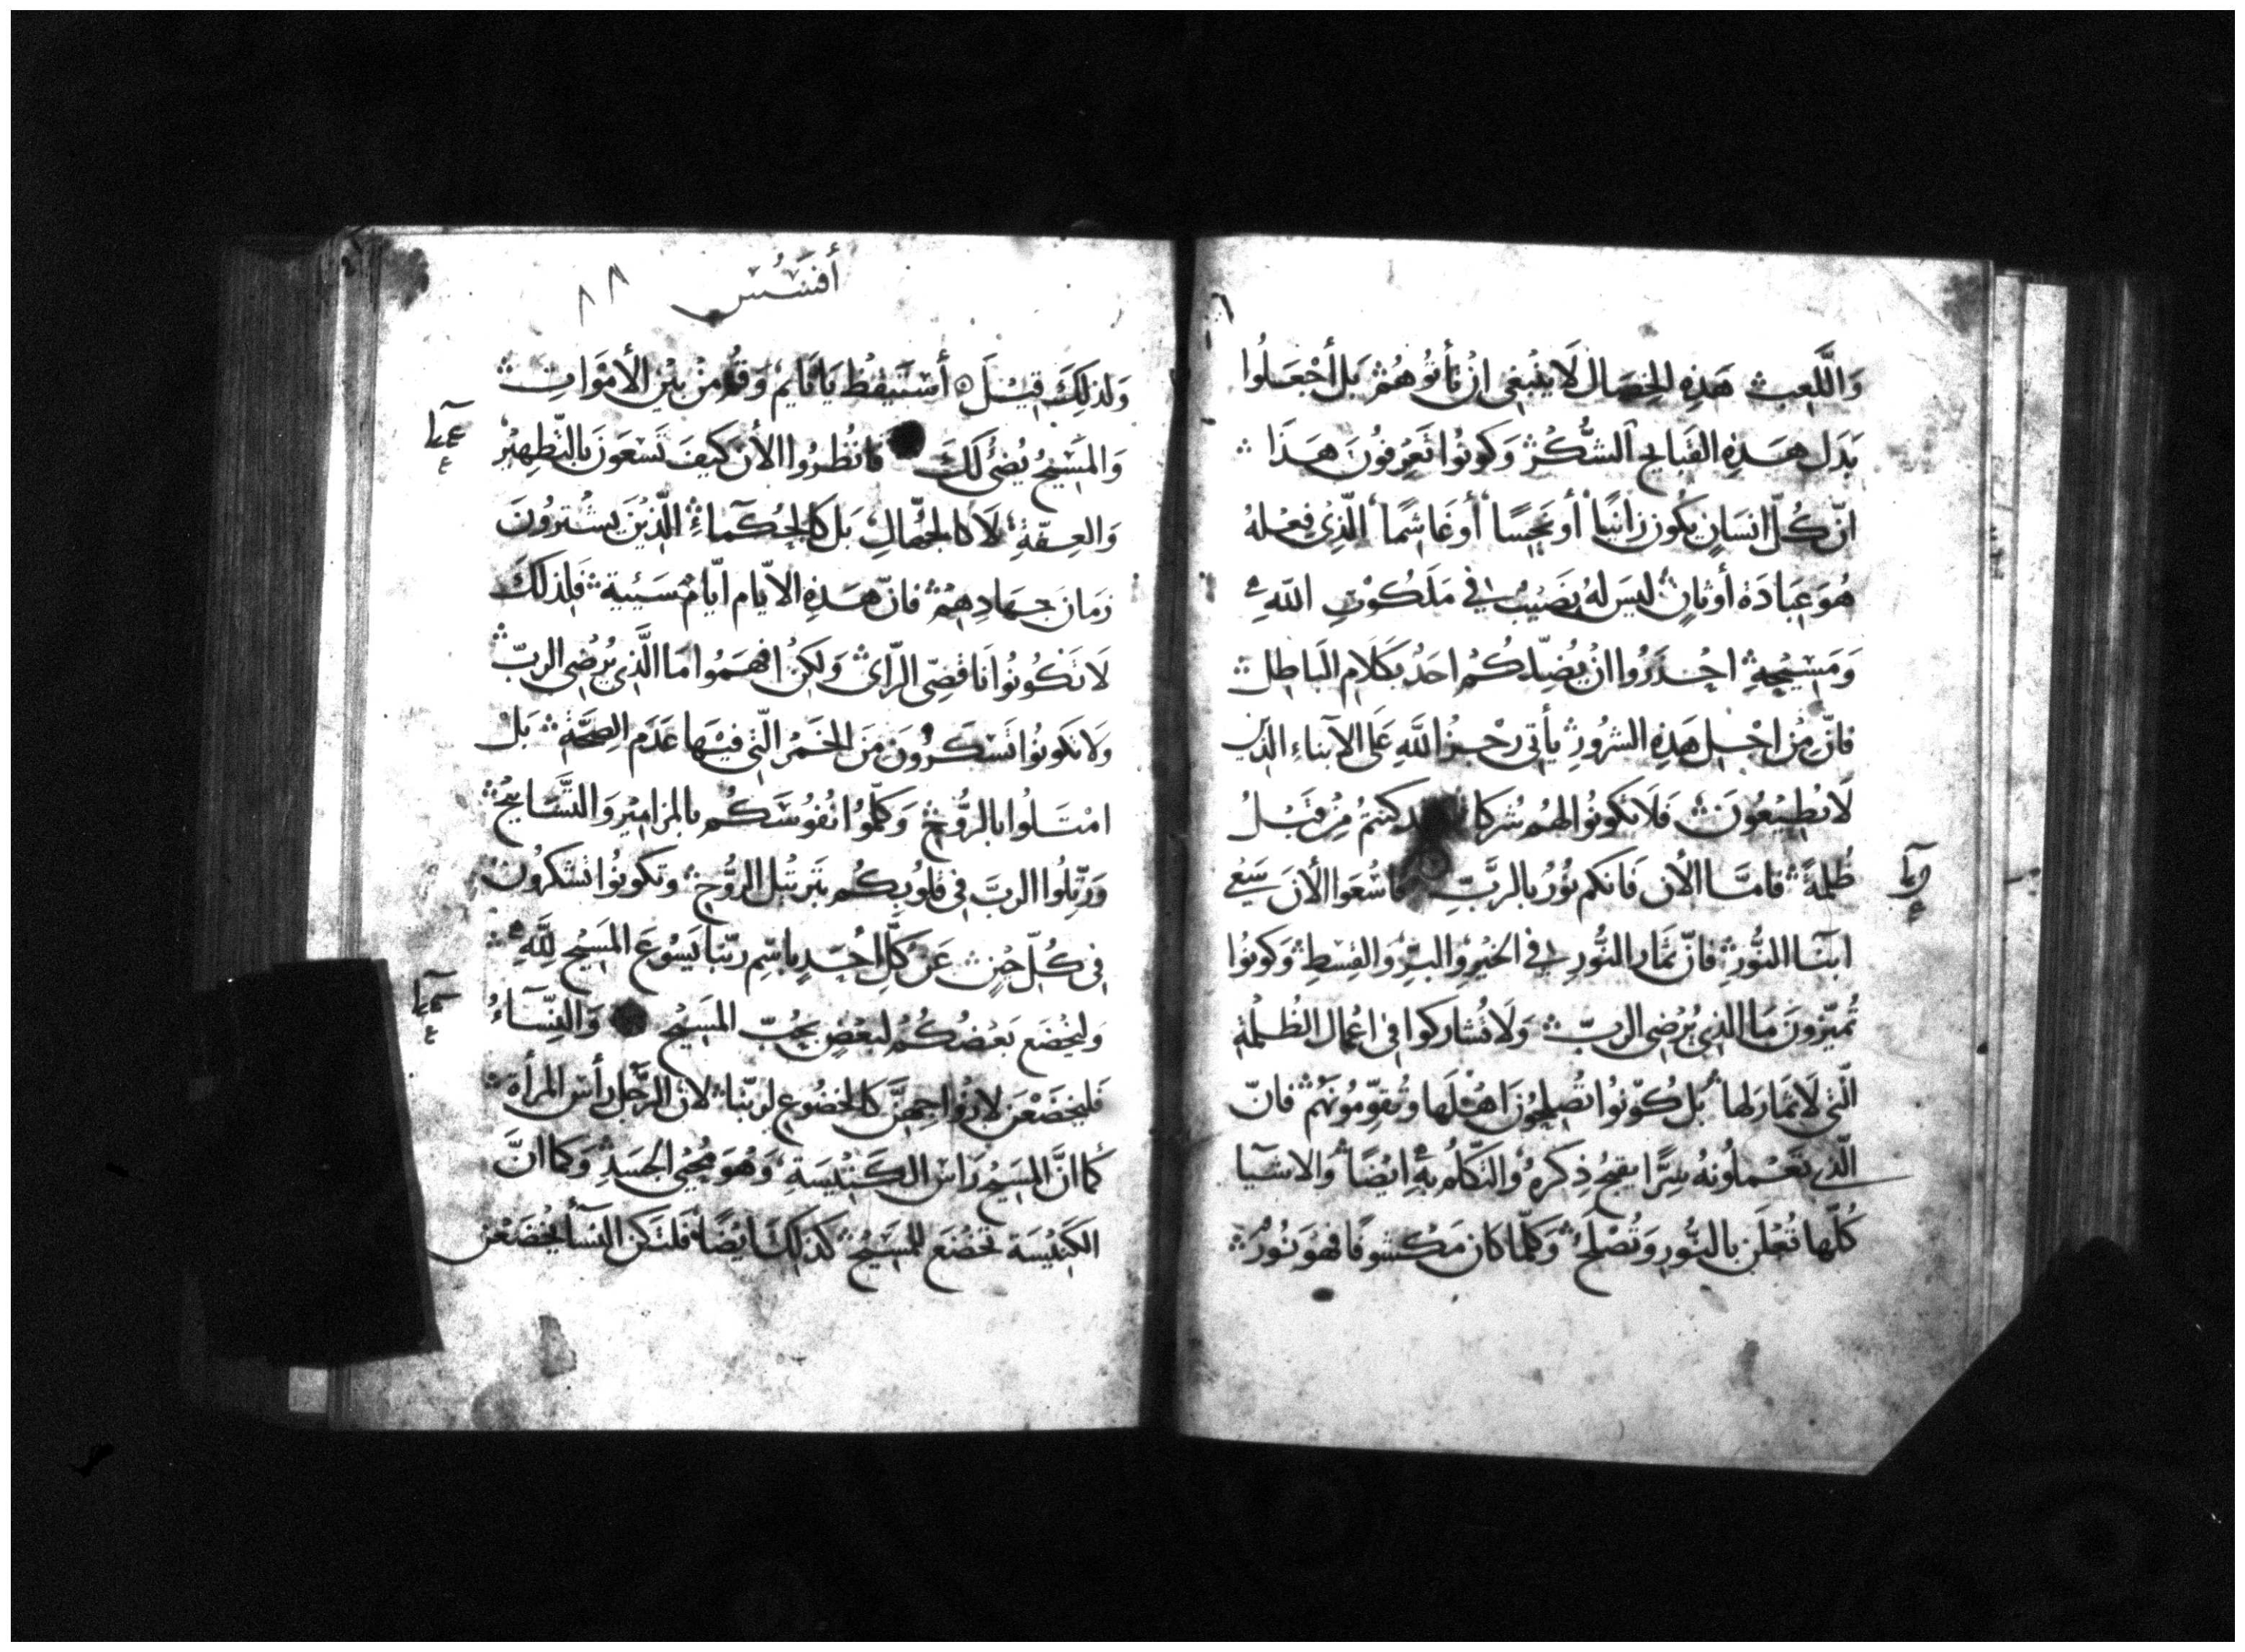 وَاللَّعِب هَذِهِ الخِصَال لَا يَنْبَغي انْ تأتوُهُمْ بَل أجْعَلُوا
بَدَل هَذِهِ القَبَايح الشُّكْرْ وَكونُوا تَعْرِفُونَ هَذَا
انّ كُلّ انسَانٍ يكُون زانيًا أو نَجِسًا أو غَاشِمًا الّذِي فِعْلهُ
هُوَ عِبَادَة أوثانٍ ليسَ لهُ نَصَيْبٌ في مَلَكُوْتِ اللّهِ
وَمَسِيْحِهِ احْذَرُوا انْ يُضِلّكُمْ احَدٌ بكَلَام البَاطِل
فانّ مِنْ اجْل هَذِهِ الشرُورِ يأتي رجْز اللّهِ عَلى الآبناءِ الذين
لَا يُطِيْعُونَ فَلَا تكونُوا لهُم شركا كنتمْ مِنْ قَبْلُ
ظُلمةً فامّا الأن فَانكم نُوْرٌ بالربّ فاسْعَوا الأنَ سَعْي
ابنَا النُّورِ فانّ ثمَار النُّورِ في الخَيْرِ وَالبرّ وَالقِسْطِ وَكونُوا
تُميّزونَ مَا الذِي يُرْضِي الربّ وَلَا تُشاركوا في اعْمال الظُلْمَةِ
الّتي لَا ثمَار لهَا بَل كُوْنُوا تُصْلِحُونَ اهْلَها وَتُقوّمُونَهُمْ فانّ
الّذي تَعْملُونهُ سِرًّا يقبحُ ذِكرهُ وَالتكلّمُ بهِ ايْضًا وَالاشيَا
كُلّها تُعْلَن بالنُّورِ وَتُصْلَحُ وَكلّما كان مَكْشوفًا فهُوَ نُوْرٌ
أفسَسُس
٨٨
وَلذلِكَ قِيْلَ أسْتَيقظ يَا نَايم وَقُمْ مِنْ بيْن الأمْوَات
وَالمَسِيْحُ يُضئ لَكَ فانظُروا الأن كيفَ تَسْعَونَ بالتّطهِيْر
وَالعِفّةِ لَا كَالجُهّالِ بَل كَالحُكمآءِ الّذيْن يشْترُونَ
زمَانَ جهَادِهِمْ فانّ هَذِهِ الايّام ايّامٌ سَيئية فلِذلكَ
لَا تَكُونُوا نَاقصِي الرّاى وَلكِن افهَمُوا مَا الَّذِي يُرْضِي الربّ
وَلا تكونُوا تَسْكَرُونَ منَ الخَمْر الّتي فيْها عَدَم الصِحَّةِ بَلْ
امْتَلُوا بالرُّوحِ وَكلّمُوا نُفُوْسَكُم بالمزاميْر وَالتّسَابيْح
وَرَتِّلُوا الربَّ في قلوُبكُم بتَرتيْل الرُّوْحِ وتكونُوا تشكرُونَ
في كُلّ حِيْنٍ عَن كلِّ احَدٍ باسْم ربّنا يَسُوْعَ المَسِيْح لِلَّهِ
وَليخْضَع بَعْضُكُمْ لبَعْضٍ بحُبّ المَسِيْحِ وَالنّسَآءُ
فليخْضَعْنَ لازوَاجهنَّ كَالخضُوعِ لربّنا لانّ الرَّجُل رأس المرأة
كما انّ المَسِيْحَ رَاس الكَنيْسَةِ وَهُوَ مُحيي الجَسَدِ وَكما انَّ
الكَنيْسَة تَخْضَع للمَسِيْح كذلكَ ايْضًا فلتكن النسَأ يخْضَعْن